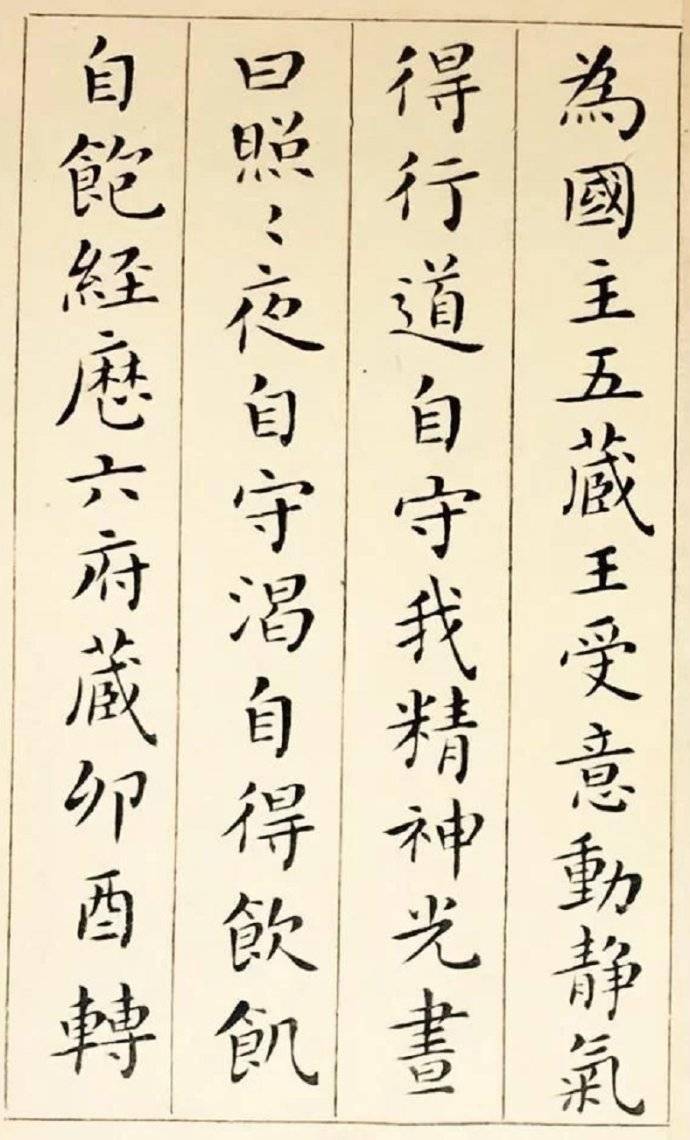 為國主五蔵王受意動静氣
得行道自守我精神光晝
日照〻夜自守渴自得飲飢
自飽経歷六府蔵卯酉轉